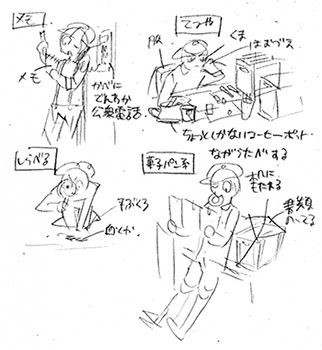 メモ
メモ
かべに
でんわか
公衆電話
てつや
服
くま
ほおづえ
ちょっとしかないコーヒーポット
ながらたべする
しらべる
手ぶくろ
血とか
菓子パン系
机に
もたれる
書類
のってる